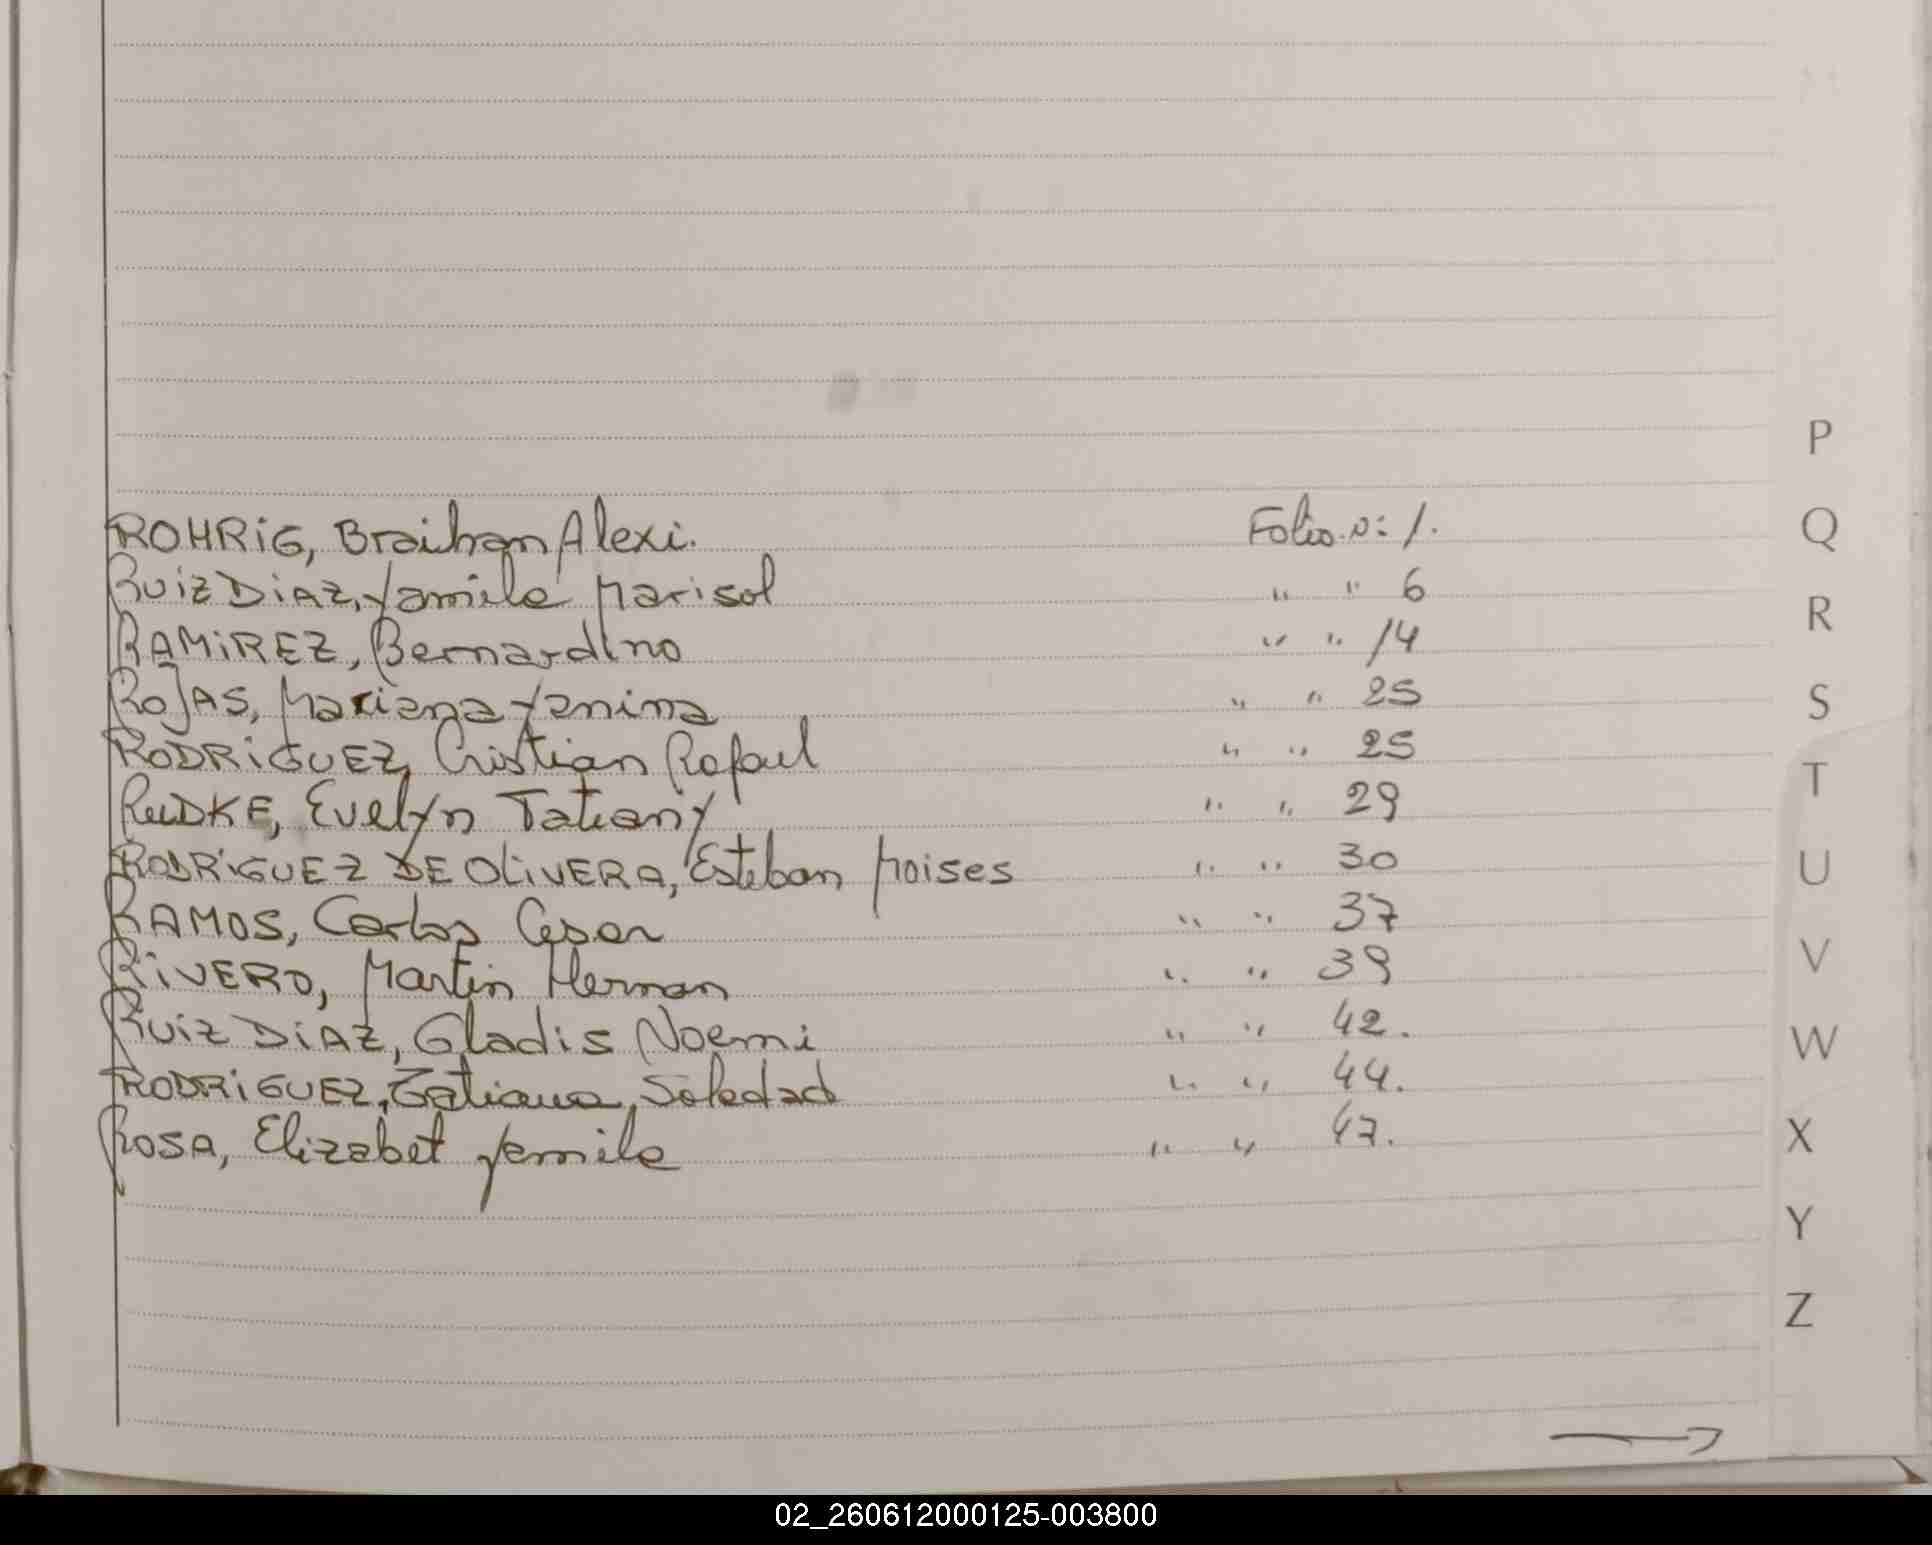 ROHRiG, Braihan Alexi. Folio. N: 1.
RUiZ DiAZ, Yamile Marisol " " 6
RAMiREZ, Bernardino " " 14
ROJAS, Mariana Yanina " " 25
RODRiGUEZ, Cristian Rafael " " 25
RUDKE, Evelyn Tatiany " " 29
RODRiGUEZ DE OLiVERA, Esteban Moises " " 30
RAMOS, Carlos Cesar " " 37
RiVERO, Martin Hernan " " 39
RUiZ DiAZ, Gladis Noemi " " 42.
RODRiGUEZ, Tatiana, Soledad " " 44.
ROSA, Elizabet Yamile " " 47.
P
Q
R
S
T
U
V
W
X
Y
Z
02_260612000125-003800